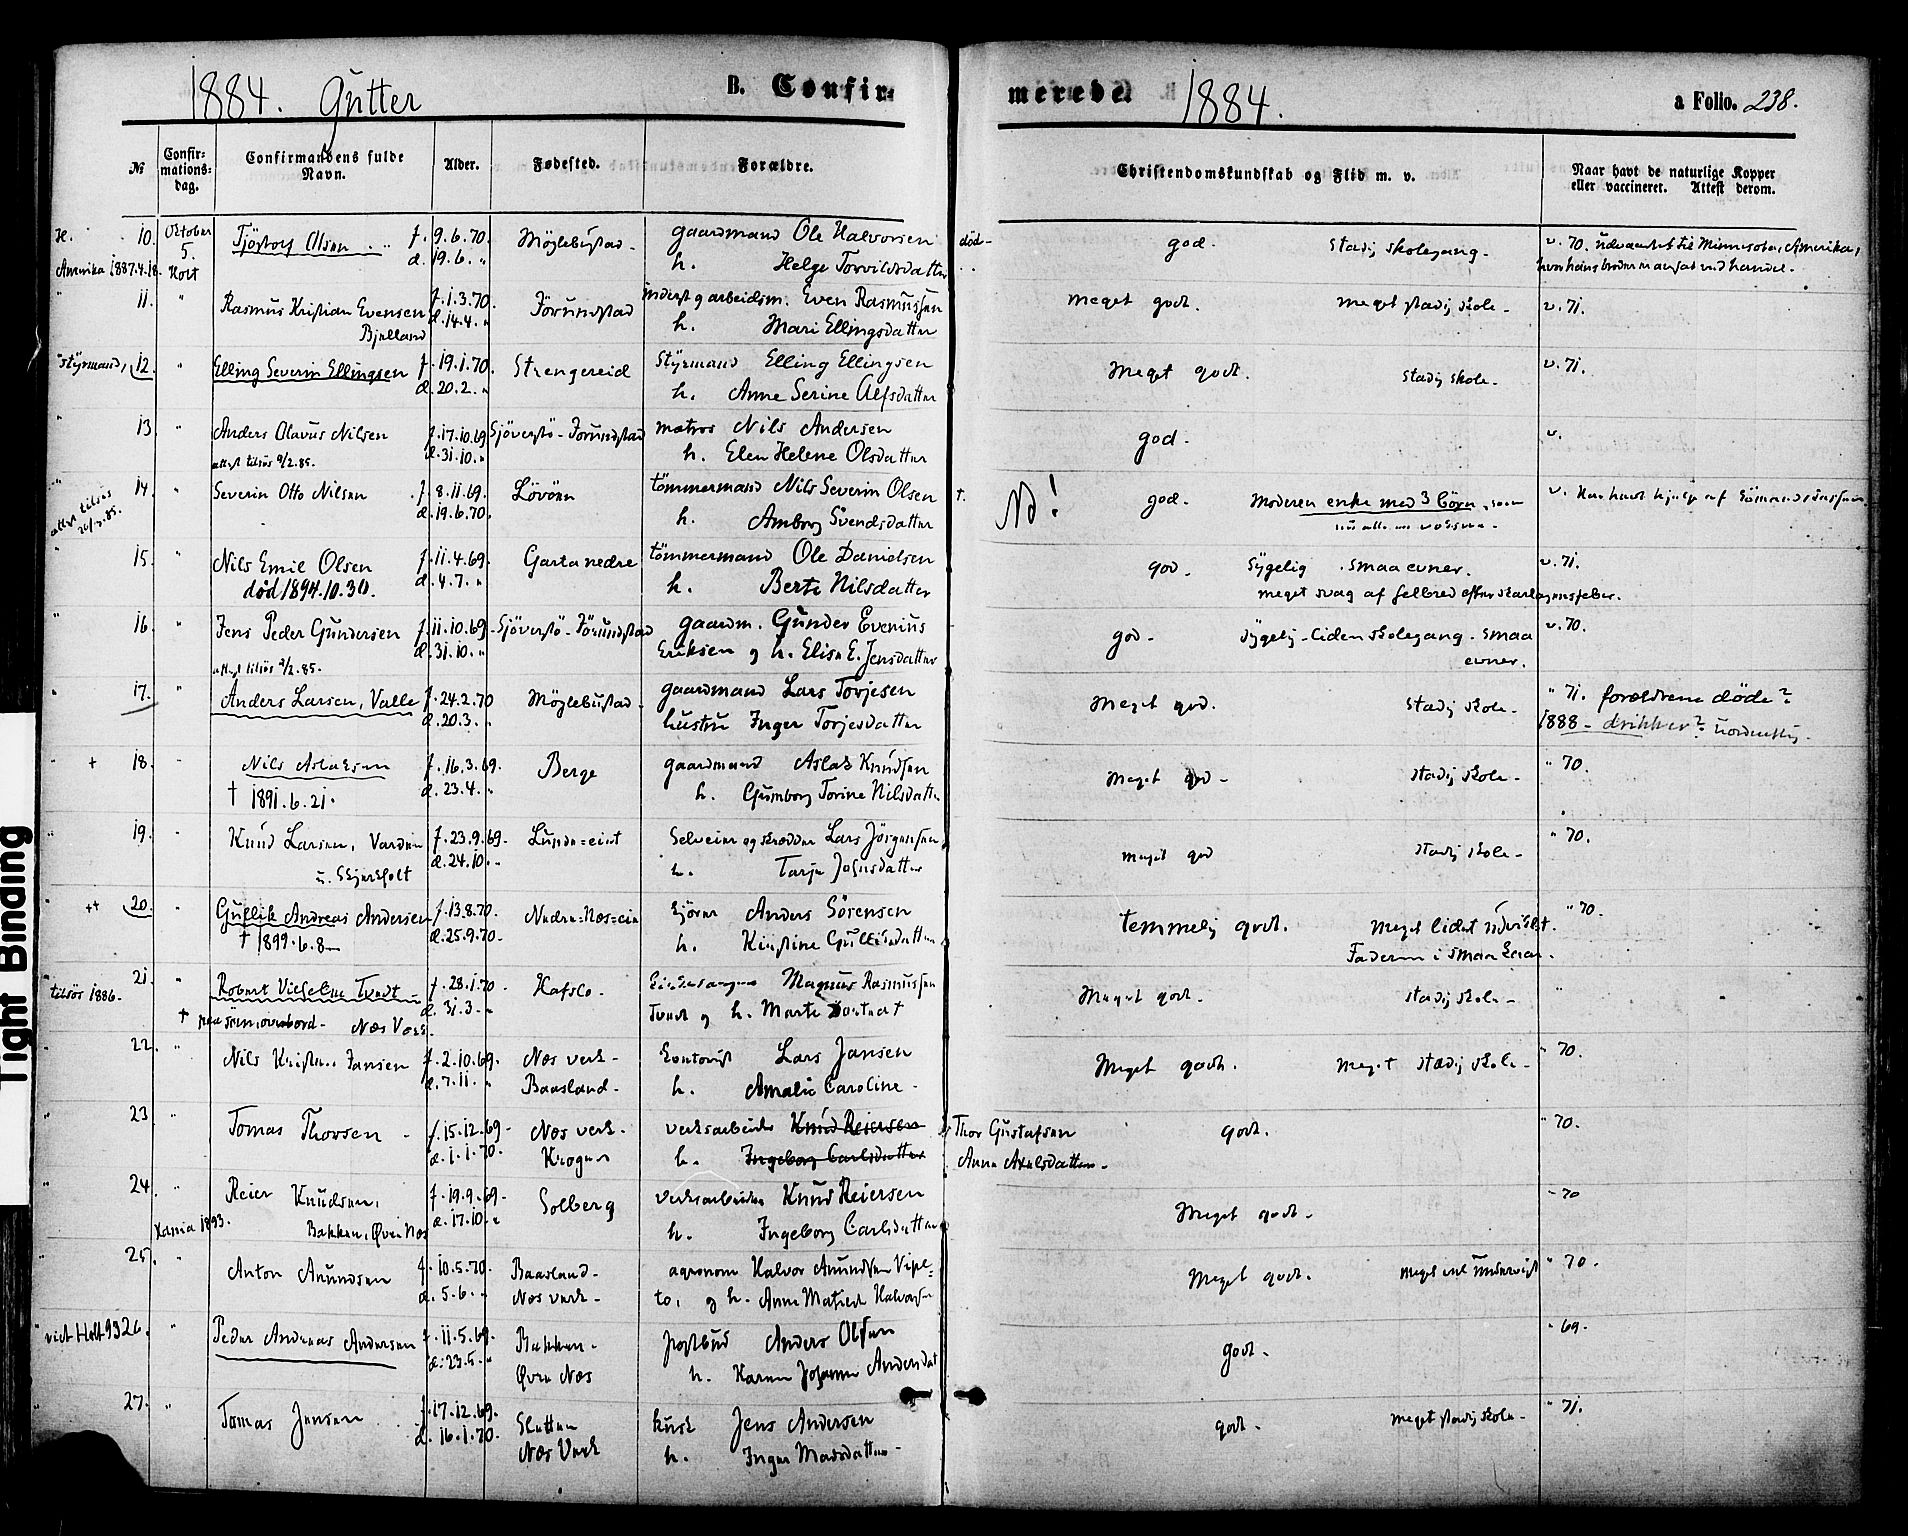 1884. Gutter B. Confir- merede 1884. a Folio. 238.
№ Confir- mations- dag. Confirmandens fulde Navn. Alder. Fødested. Forældre. Christendomskundskab og Flid m. v. Naar havt de naturlige Kopper eller vaccineret. Attest derom.
H. 10. Oktober 5. Tjöstolf Olsen f. 9.6.70. Möglebustad. gaardmand Ole Halvorsen död. god. Stadig skolegang. v. 70. udvandret til Minnesota, Amerika,
Amerika 1887.4.18. Holt d. 19.6. " h. Helge Torvildsdatter hvor hans broder er ansat ved handel.
" 11. " Rasmus Kristian Evensen f. 1.3.70. Förundstad inderst og arbeidsm. Even Rasmussen meget godt. meget stadig skole. v. 71.
Bjelland d. 14.4. " h. Mari Ellingsdatter
"styrmand, 12. " Elling Severin Ellingsen f. 19.1.70. Strengereid Styrmand Elling Ellingsen Meget godt. Stadig skole. v. 71.
d. 20.2. " h. Anne Serine Alfsdatter
" 13. " Anders Olavus Nilsen f. 17.10.69 Sjöverstö-Förundstad matros Nils Andersen god. v.
attest tilsös 9/2.85. d. 31.10. " h. Elen Helene Olsdatter
" 14. " Severin Otto Nilsen f. 8.11.69. Lövöen tömmermand Nils Severin Olsen †. NB! god. Moderen enke med 3 börn, som v. Har havt hjelp af
attest tilsös d. 19.6.70. h. Amborg Svendsdatter nu alle er voksne.
" 15. " Nils Emil Olsen f. 11.4.69. Garta nedre tömmermand Ole Danielsen god. Sygelig. smaa evner. v. 71.
död 1894.10.30. d. 4.7. " h. Berte Nilsdatter meget svag af helbred efter skarlagensfeber.
" 16. " Jens Peder Gundersen f. 11.10.69 - Sjöverstö-Förundstad gaardm. Gunder Evenius god. sygelig - liden skolegang. smaa v. 70.
attest tilsös 9/2.85. d. 31.10. " Eriksen og h. Elise E. Jensdatter evner.
" 17. " Anders Larsen, Valle f. 24.2.70 Möglebustad. gaardmand Lars Torjesen Meget god. Stadig skole. " 71. forældrene döde?
d. 20.3. " hustru Inger Torjesdatter 1888 - drikker? uordentlig.
" + 18. " Nils Aslaksen f. 16.3.69. Berge gaardmand Aslak Knudsen Meget god - stadig skole. " 70.
† 1891.6.21. d. 23.4. " h. Gumborg Torine Nilsdatter
" 19. " Knud Larsen, Varden f. 23.9.69. Lunde=eiet Selveier og skrædder Lars Jörgensen, meget god stadig skole. " 70.
u. Skjerkholt d. 24.10. " h. Tarje Johnsdatter
++ 20. " Gullik Andreas Andersen f. 13.8.70. Nedre=Næs=eie Anders Sörensen temmelig godt. Meget lidet udviklet. " 70.
† 1899.6.8 d. 25.9.70. h. Kirstine Gulliksdatter Faderen i smaa kaar.
" 21. " Robert Vilhelm Tvedt f. 28.1.70 Hafslo. Magnus Rasmussen Meget godt. stadig skole - "
tilsös 1886. † paa söen, overbord. Næs Verk. d. 31.3. " Tvedt og h. Marte
" 22. " Nils Jansen f. 2.10.69. Næs verk - kontorist Lars Jansen Meget godt. Meget stadig skole - " 70.
d. 7.11. " Baasland. h. Amalie Caroline.
" 23 " Tomas Thorsen - f. 15.12.69 Næs verk. verksarbeider Knud Reiersen Thor Gustafsen godt. " 70.
d. 1.1.70. h. Ingeborg Carlsdatter Anne Axelsdatter.
24. " Reier Knudsen, f. 19.9.69 Solberg verksarbeider Knud Reiersen Meget godt. " 70
1893. Bakken, Øvre Næs d. 17.10. " h. Ingeborg Carlsdatter
" 25. " Anton Anundsen f. 10.5.70. Baasland. agronom Halvor Anundsen Meget godt. Meget vel undervist " 70.
d. 5.6. " Næs verk - og h. Halvorsd.
viet Holt 93 26. " Peder Andreas Andersen f. 11.5.69. Bakken. postbud Anders Olsen godt. " 69.
d. 23.5. " Øvre Næs h. Karen Johanne Andersdat
" 27. " Tomas Jensen f. 17.12.69. Sletten kusk Jens Andersen godt. meget stadig skole. " 71.
d. 16.1.70. Næs Verk h. Inger Madsdatter
Tight Binding